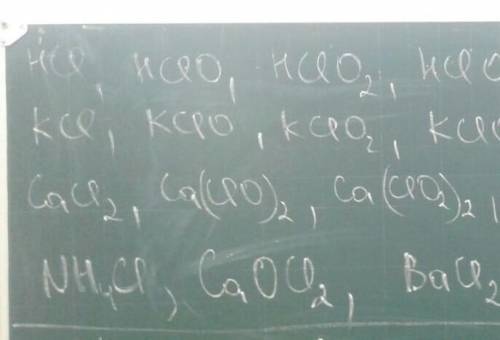 HCl, HClO, HClO₂, HClO
KCl, KClO, KClO₂, KClO
CaCl₂, Ca(ClO)₂, Ca(ClO₂)₂,
NH₄Cl, CaOCl₂, BaCl₂